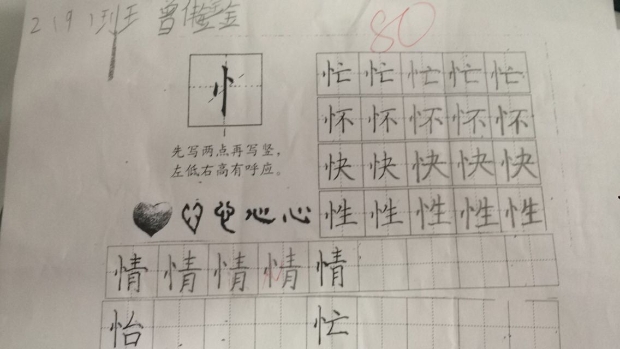 2(9)班
80
忄
先写两点再写竖，
左低右高有呼应。
忙忙忙忙忙
怀怀怀怀怀
快快快快快
性性性性性
心心
情情情情情
怡 忙